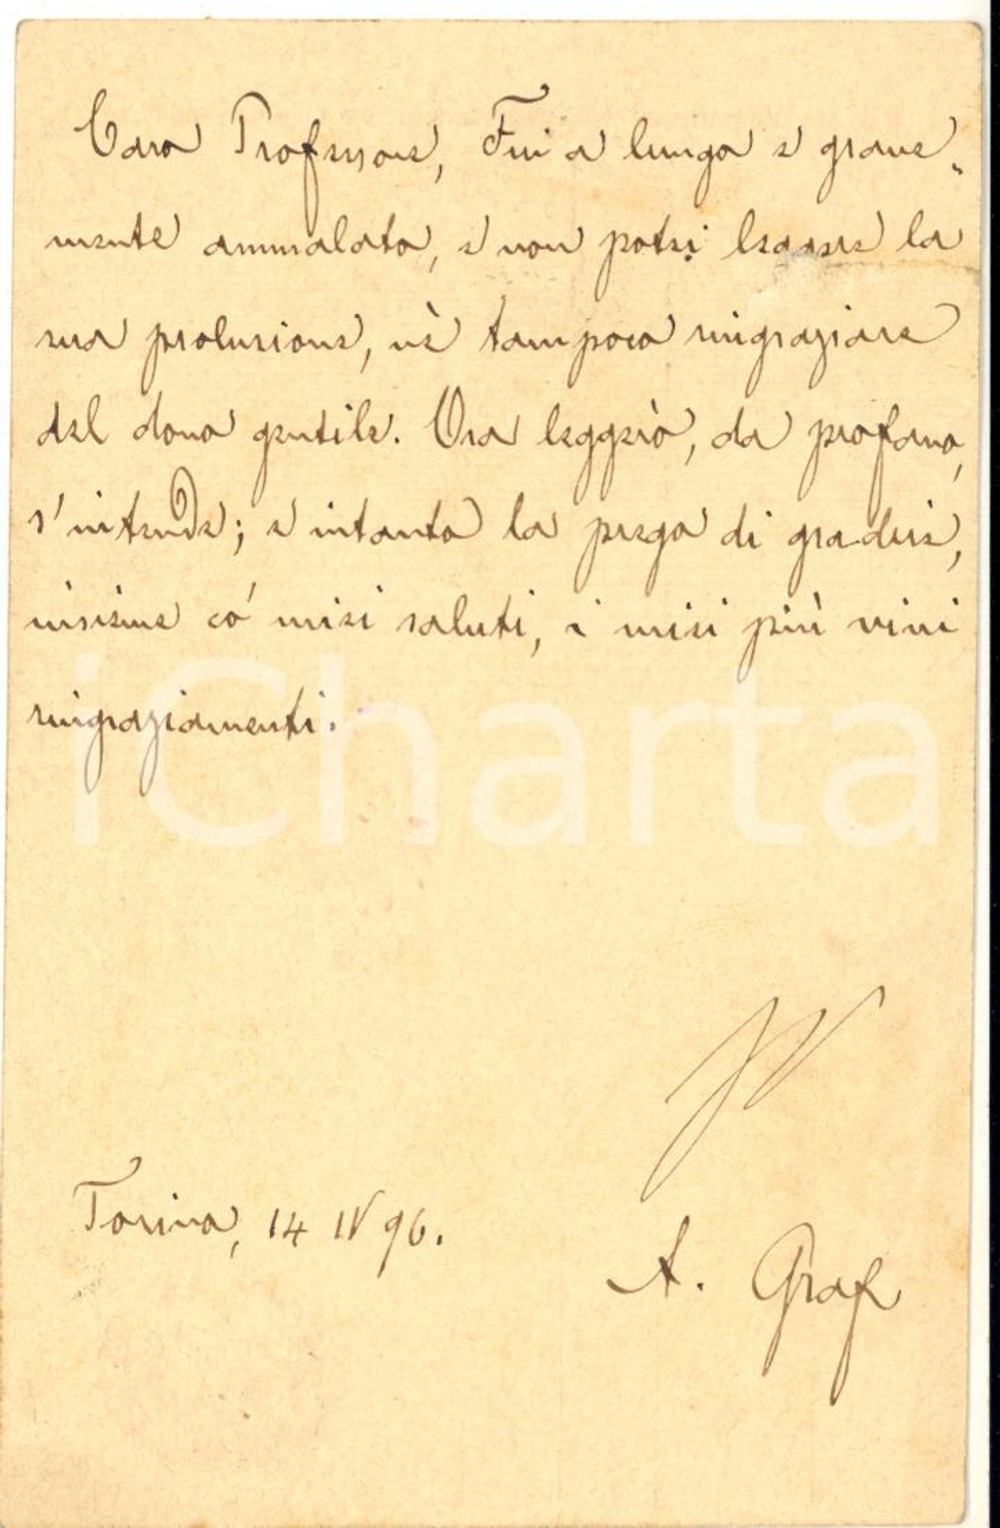 Caro Professore, Fui a lungo e grave-
mente ammalato, e non potei leggere la
sua prolusione, nè tampoco ringraziare
del dono gentile. Ora leggerò, da profano,
s'intende; e intanto la prego di gradire,
insieme co' miei saluti, i miei più vivi
ringraziamenti.
iCharta
Torino, 14 IV 96.
A. Graf